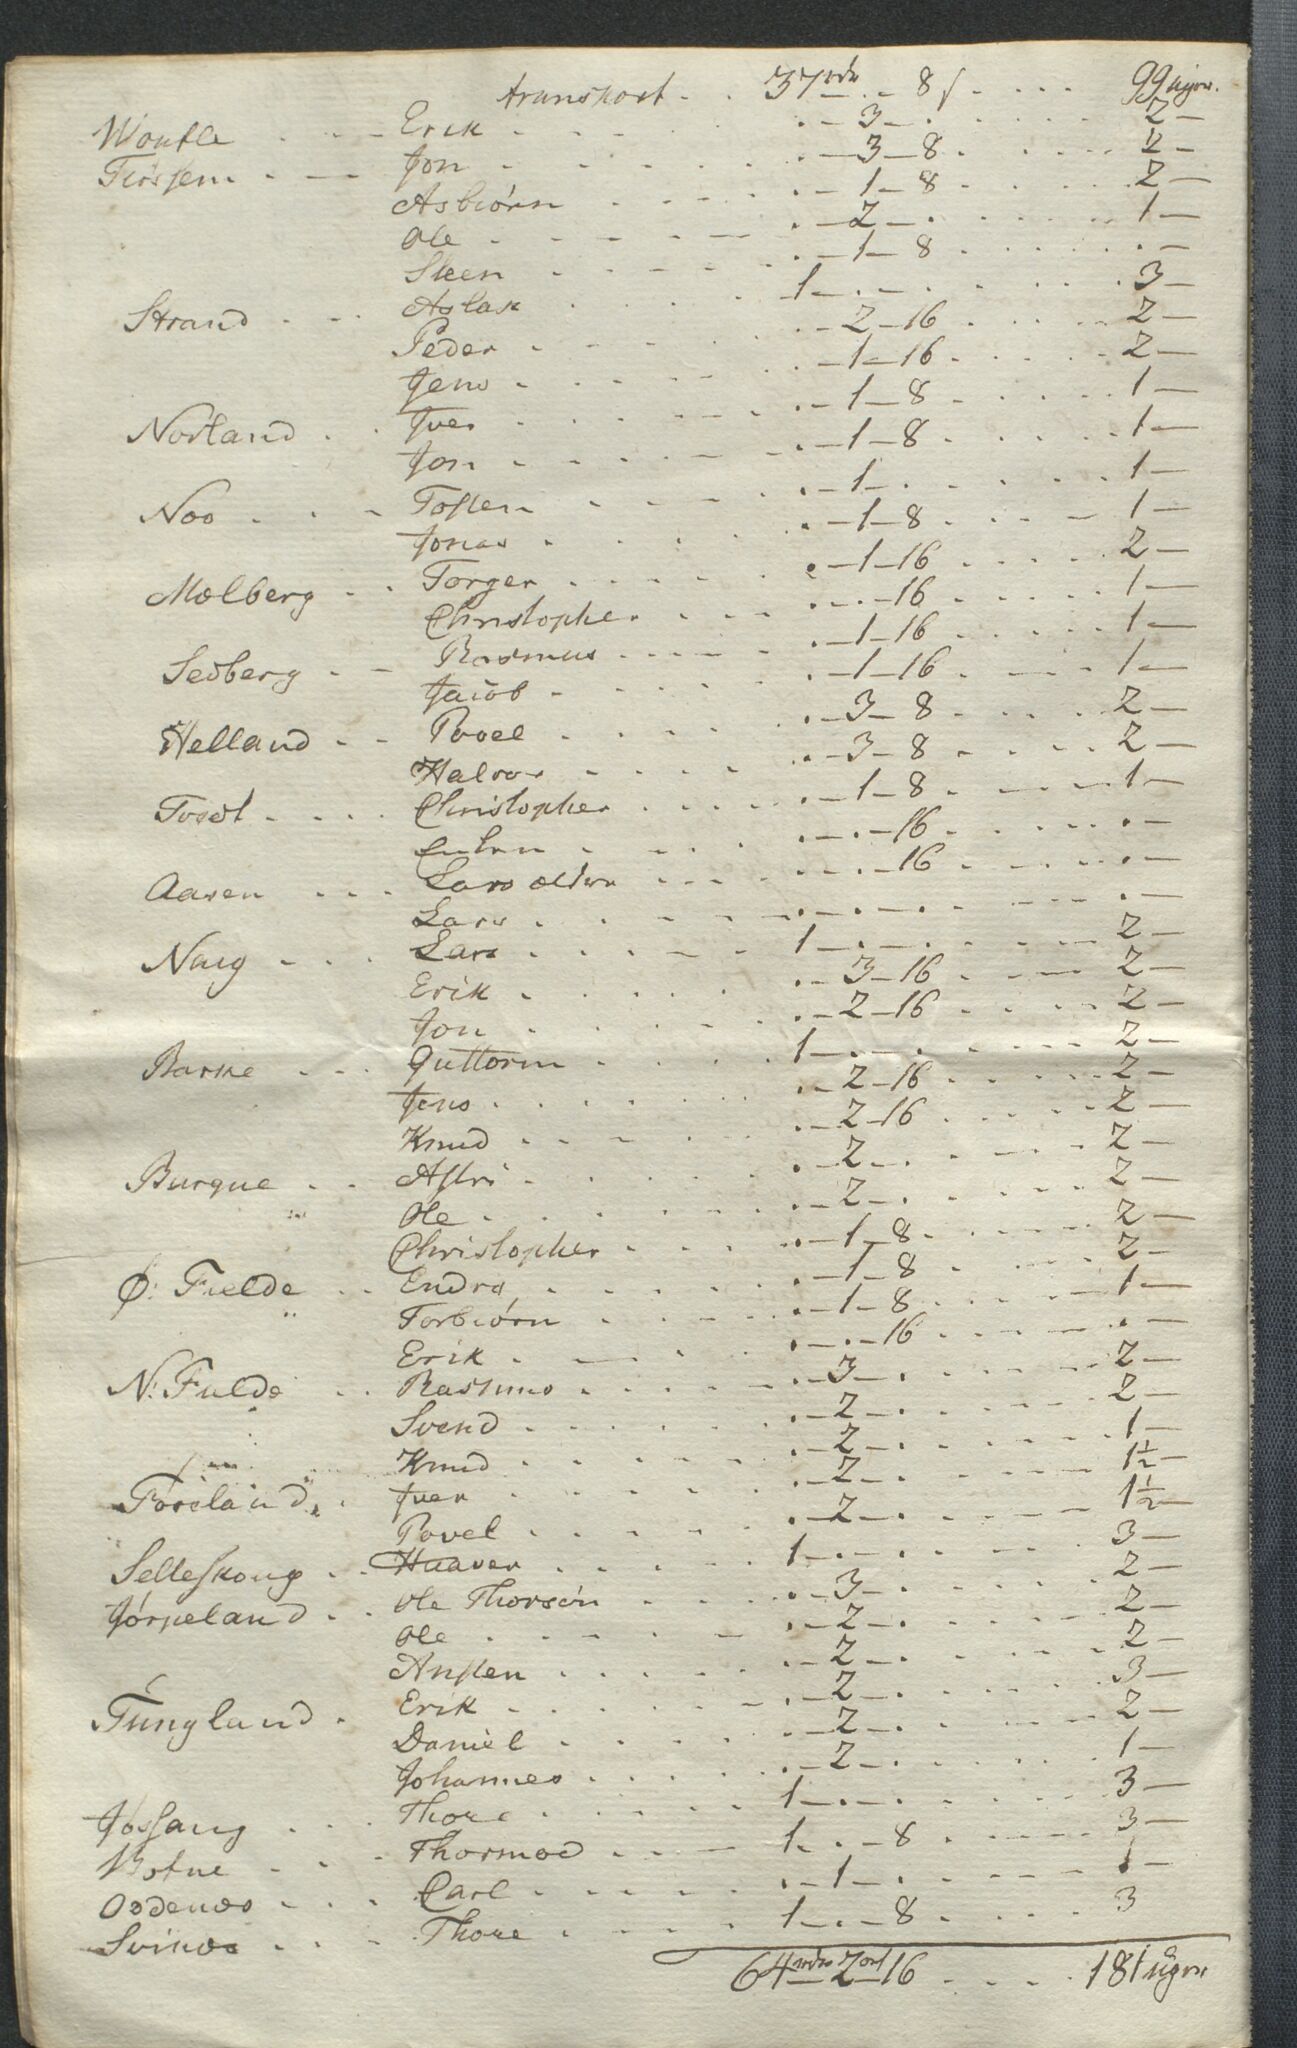 transport . . 37 rdr — . — 8 s . . . . 99 uger
Woutle . . — — Erik . . . . . — 3 — . . . . . 2 —
Tiøssem . — — Jon . . . . . — 3 — 8 . . . . 2 —
Asbiørn . . . . . — 1 — 8 . . . . 2 —
Ole . . . . . — 2 — . . . . . 1 —
Steen . . . . . — 1 — 8 . . . . . —
Strand . . . Aslak . . . . 1 — . — . . . . . 3 —
Peder . . . . . — 2 — 16 . . . . 2 —
Jens . . . . . — 1 — 16 . . . . 2 —
Norland . . Iver . . . . . — 1 — 8 . . . . 1 —
Jon . . . . . — 1 — 8 . . . . 1 —
Noo . . . Tosten . . . . — 1 — . . . . . 1 —
Jonas . . . . . — 1 — 8 . . . . 1 —
Mølberg . . Torger . . . . . — 1 — 16 . . . . 2 —
Christopher . . . . — . — 16 . . . . 1 —
Sedberg . — Rasmus . . . . — 1 — 16 . . . . 1 —
Jacob . . . . . — 1 — 16 . . . . 1 —
Helland . . Povel . . . . . — 3 — 8 . . . . 2 —
Halvor . . . . . — 3 — 8 . . . . 2 —
Tvedt . . . . Christopher . . . . — 1 — 8 . . . . 1 —
Enken . . . . . — . — 16 . . . . . —
Aasen . . . Lars ældre . . . . — . — 16 . . . . . —
Lars . . . . . — . — . . . . . . —
Naig . . . Lars . . . . 1 — . — . . . . . 2 —
Erik . . . . . — 3 — 16 . . . . 2 —
Jon . . . . . — 2 — 16 . . . . 2 —
Barke . . . Guttorm . . . . 1 — . — . . . . . 2 —
Jens . . . . . — 2 — 16 . . . . 2 —
Knud . . . . . — 2 — 16 . . . . 2 —
Burgue . . Astri . . . . . — 2 — . . . . . 2 —
Ole . . . . . — 2 — . . . . . 2 —
Christopher . . . . — 1 — 8 . . . . 2 —
Ø: Fielde . . Endre . . . . . — 1 — 8 . . . . 2 —
Torbiørn . . . . — 1 — 8 . . . . 1 —
Erik . . . . . — . — 16 . . . . . —
N: Fielde . . Rasmus . . . . — 3 — . . . . . 2 —
Svend . . . . . — 2 — . . . . . 2 —
Knud . . . . . — 2 — . . . . . 1 —
Føreland . . Iver . . . . . — 2 — . . . . . 1½ —
Povel . . . . . — 2 — . . . . . 1½ —
Selleskoug . . Haaver . . . . 1 — . — . . . . . 3 —
Jørpeland . . Ole Thorsøn . . . . — 3 — . . . . . 2 —
Ole . . . . . — 2 — . . . . . 2 —
Ansten . . . . . — 2 — . . . . . 2 —
Tungland . Erik . . . . . — 2 — . . . . . 3 —
Daniel . . . . . — 2 — . . . . . 2 —
Johannes . . . . . — 2 — . . . . . 1 —
Jøssang . . . Thore . . . . 1 — . — . . . . . 3 —
Botne . . . Thormod . . . 1 — . — 8 . . . . 3 —
Oddenæs . . . Carl . . . . . — 1 — . . . . . 1 —
Svines . . . Thore . . . . 1 — . — 8 . . . . 3
64 rdr — 2 ort — 16 . . . . 181 uger